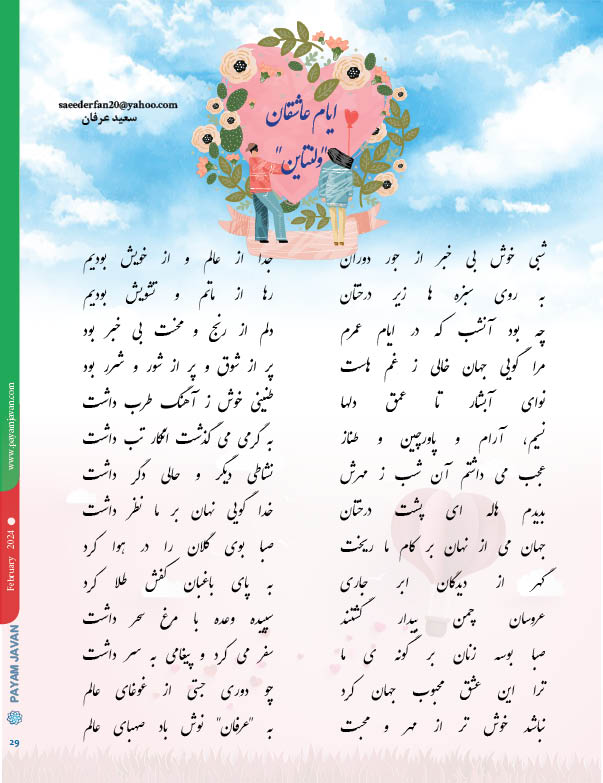 saeederfan20@yahoo.com
سعید عرفان
ایام عاشقان
"ولنتاین"
شبی خوش بی خبر از جور دوران جدا از عالم و از خویش بودیم
به روی سبزه ها زیر درختان رها از ماتم و تشویش بودیم
چه بود آنشب که در ایام عمرم دلم از رنج و محنت بی خبر بود
مرا گویی جهان خالی ز غم هاست پر از شوق و پر از شور و شرر بود
نوای آبشار تا عمق دلها طنینی خوش ز آهنگ طرب داشت
نسیم، آرام و پاورچین و طناز به گرمی می گذشت انگار تب داشت
عجب می داشتم آن شب ز مهرش نشاطی دیگر و حالی دگر داشت
بدیدم هاله ای پشت درختان خدا گویی نهان بر ما نظر داشت
جهان می از نهان بر کام ما ریخت صبا بوی گلان را در هوا کرد
گهر از دیدگان ابر جاری به پای باغبان کفش طلا کرد
عروسان چمن بیدار گشتند سپیده وعده با مرغ سحر داشت
صبا بوسه زنان بر گونه ی ما سفر می کرد و پیغامی به سر داشت
ترا این عشق محبوب جهان کرد چو دوری جستی از غوغای عالم
نباشد خوش تر از مهر و محبت به "عرفان" نوش باد صهبای عالم
www.payamjavan.com
February 2024
PAYAM JAVAN
29